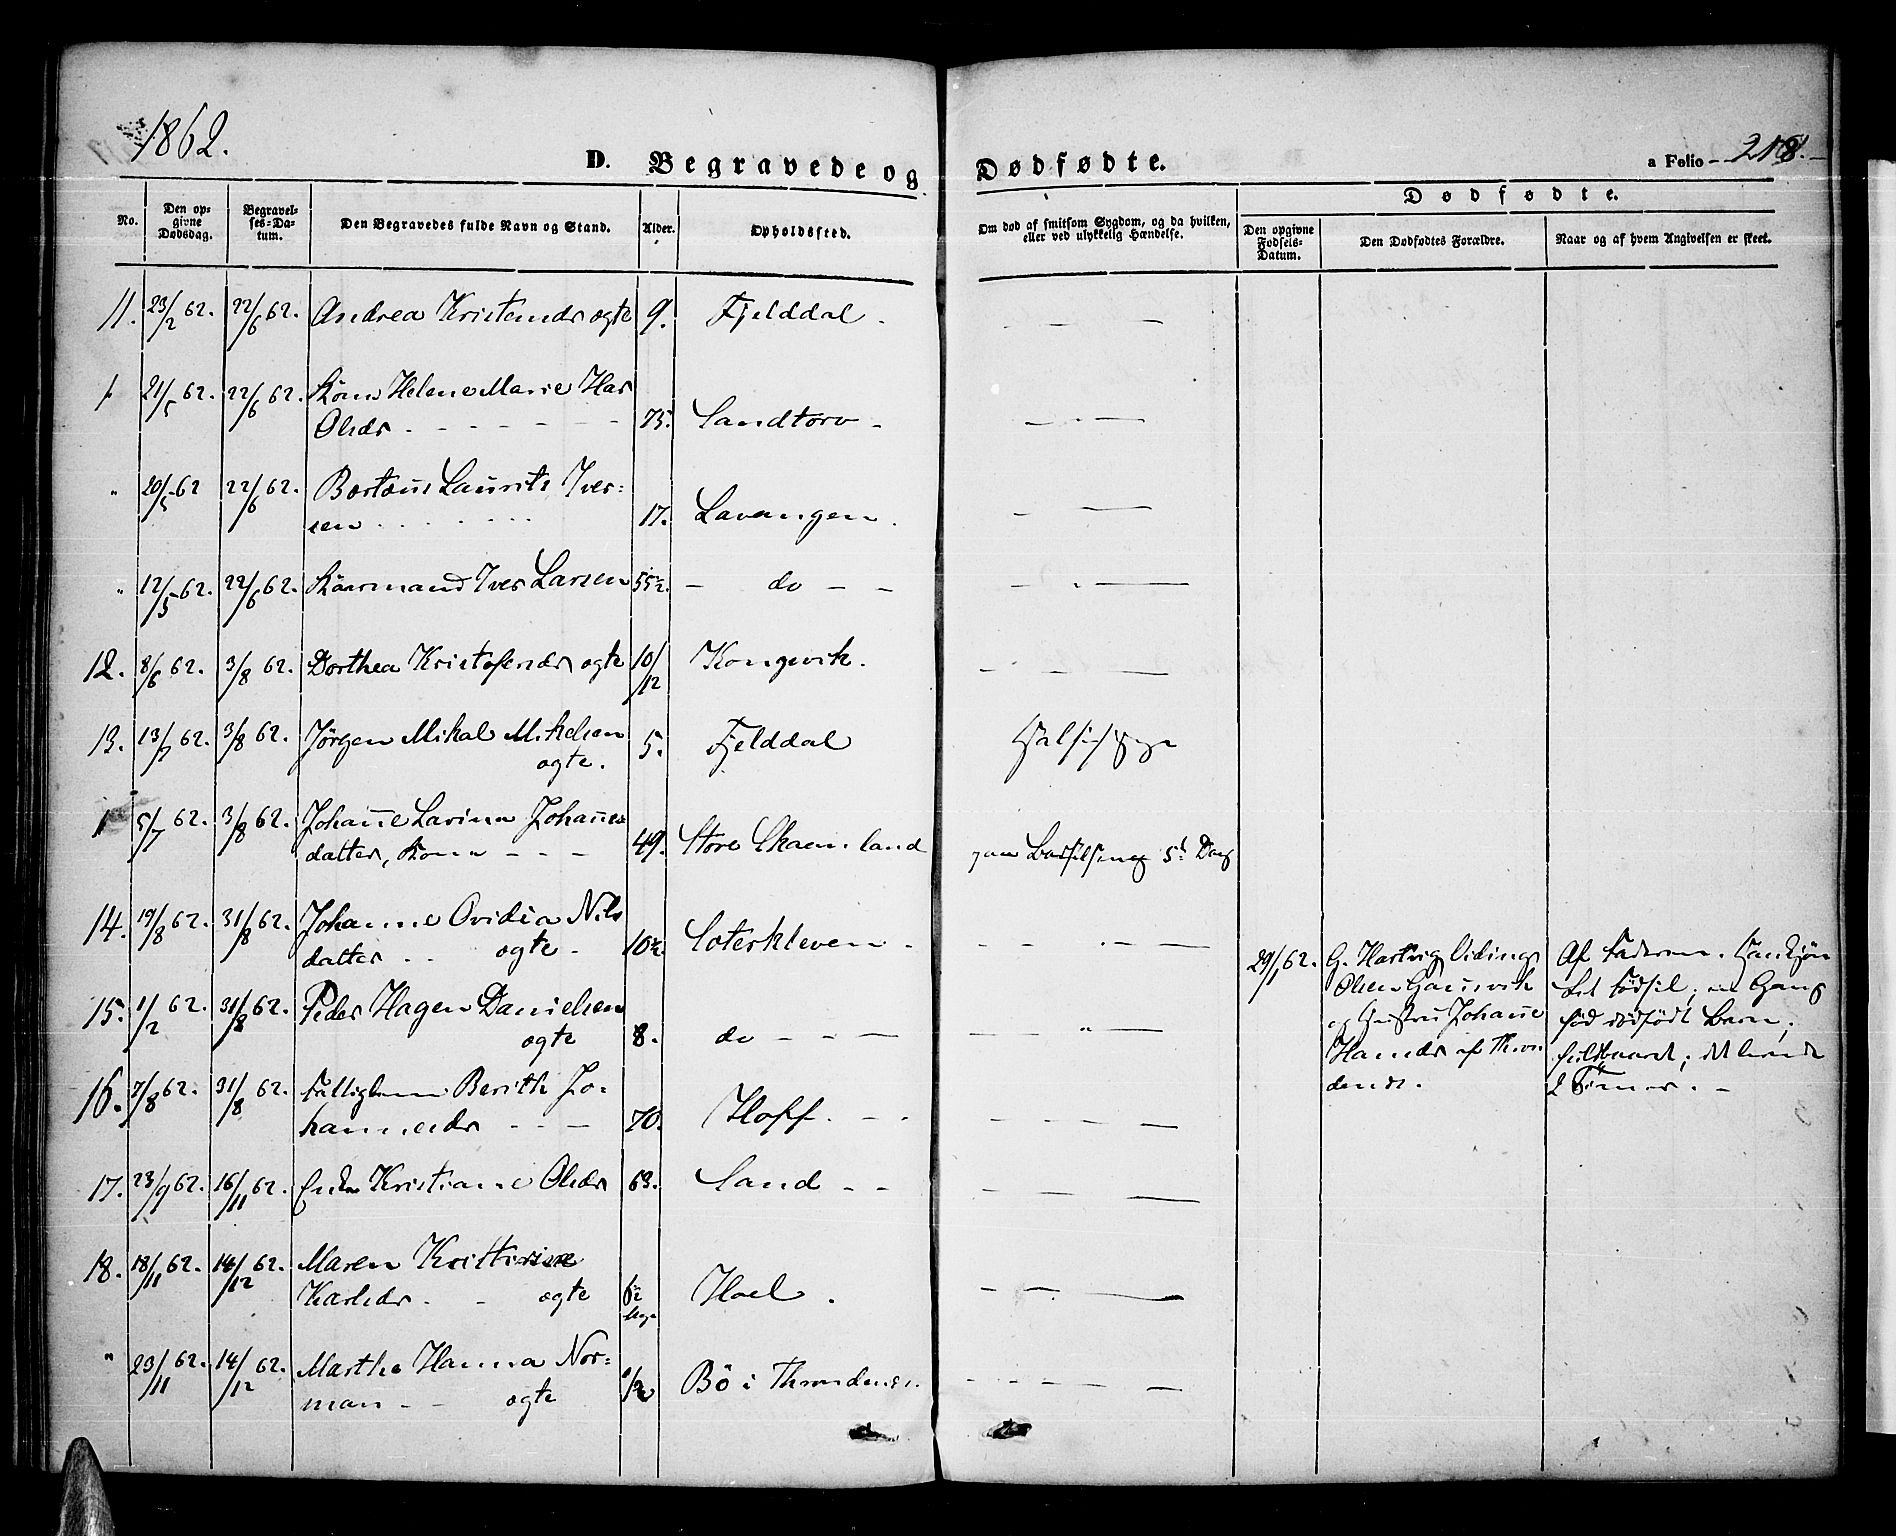 1862.
D. Begravede og Dødfødte.
a Folio 218.
No.
Den opgivne Dødsdag.
Begravelses-Datum.
Den Begravedes fulde Navn og Stand.
Alder.
Opholdssted.
Om død af smitsom Sygdom, og da hvilken, eller ved ulykkelig Hændelse.
Dødfødte.
Den opgivne Fødsels-Datum.
Den Dødfødtes Forældre.
Naar og af hvem Angivelsen er skeet.
11. 23/2 62. 22/6 62. Andrea Kristensdr ægte 9. Fjelddal - — - —
21/5 62. 22/6 62. Kone Helene Marie Has
Olsdr - - - - - - 75. Sandtorv - — - —
" 20/5 62 22/6 62. Berteus Laurits Iver=
sen - - - - - 17. Lavangen. — - —
" 12/5 62. 22/6 62. Kåarmand Iver Larsen 55½. - do - - — - —
12. 8/6 62. 3/8 62. Dorthea Kristofersdr ægte 10/12 Kongsvik. — - —
13. 13/7 62. 3/8 62. Jørgen Mikal Mikelsen
ægte. 5. Fjelddal Halssyge
5/7 62. 3/8 62. Johanne Lavina Johannes
datter, Kone - - - 49. Store Skaanland paa Barselseng 5te Dag
14. 19/8 62. 31/8 62. Johanne Ovidia Nils
datter - - ægte - 10½. Soterkleven - - - - — —
15. 1/2 62. 31/8 62. Peder Hagen Danielsen
ægte 8. do - - — — " —
16. 7/8 62. 31/8 62. Fattiglem Berith Jo-
hannesdr - - — 70. Hoff. - - — - — —
17. 23/9 62. 16/11 62. Enke Kristiane Olsdr 63. Sand - - — - —
18. 18/11 62. 14/12 62. Maren Kristine
Karlsdr. - ægte 6 Uger Hoel. — - —
" 23/11 62. 14/12 62. Marthe Hanna Nor=
man - - ægte ½ Bö i Throndenæs. - - - — —
29/1 62. G. Hartvig Vidings
Olsen Gausvik
og Hustru Johanne
Hansdr af Thron
denæs.
Af Faderen.
Født Fødsel; en Gang
fød dødfødt Barn;
fuldbaaret; det levende
2 Timer. -